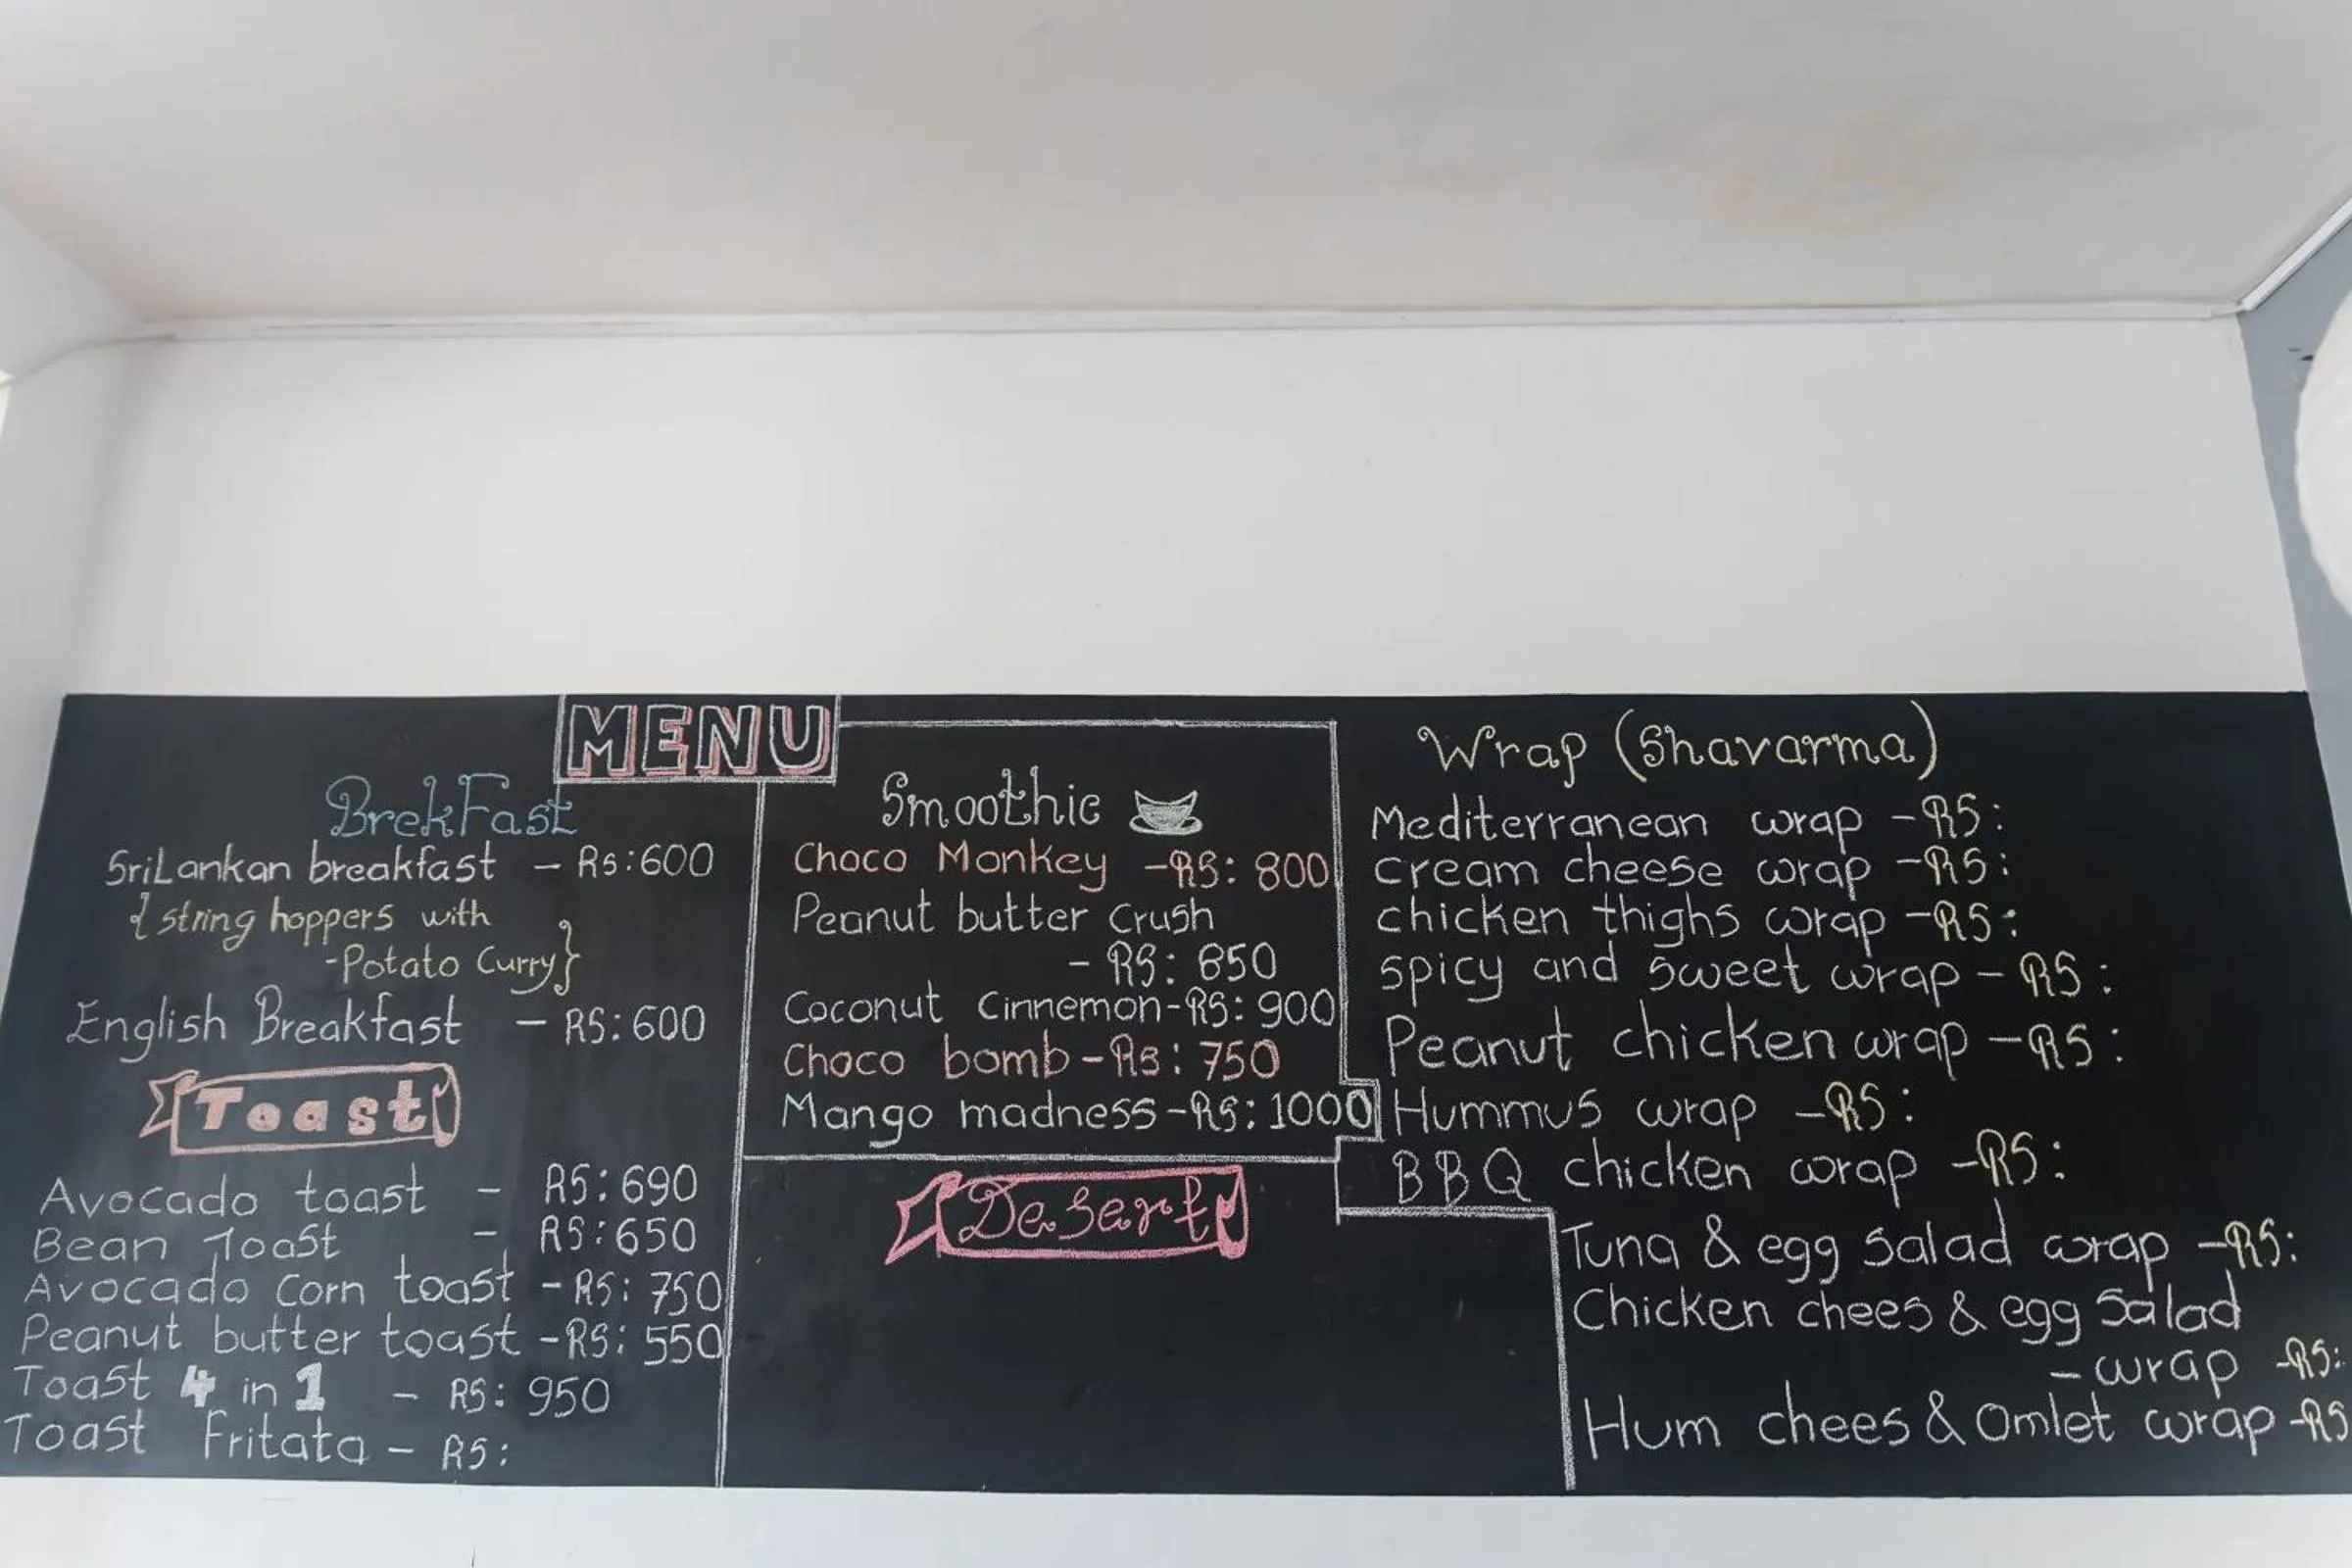 MENU
BrekFast
SriLankan breakfast - Rs:600
{string hoppers with
-Potato Curry}
English Breakfast - RS:600
Toast
Avocado toast - RS:690
Bean Toast - RS:650
Avocado corn toast - RS: 750
Peanut butter toast - RS: 550
Toast 4 in 1 - RS: 950
Toast Fritata - RS:
Smoothie
Choco Monkey - RS: 800
Peanut butter Crush
- RS: 850
Coconut Cinnemon - RS: 900
Choco bomb - RS: 750
Mango madness - RS: 1000
Desert
Wrap (Shavarma)
Mediterranean wrap - RS:
cream cheese wrap - RS:
chicken thighs wrap - RS:
spicy and sweet wrap - RS:
Peanut chicken wrap - RS:
Hummus wrap - RS:
BBQ chicken wrap - RS:
Tuna & egg Salad wrap - RS:
Chicken chees & egg Salad
- wrap - RS:
Hum chees & Omlet wrap - RS